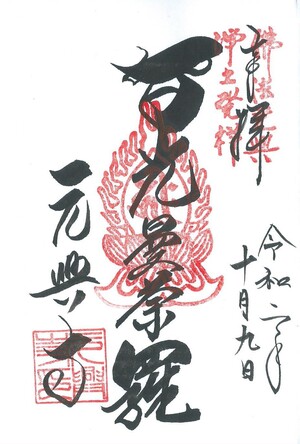 奉拝
浄土發祥
令和二年
十月九日
智光曼荼羅
元興寺